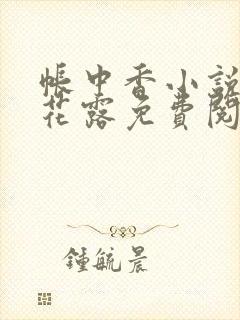 帳中香小說
花露免費閱
鍾毓晨